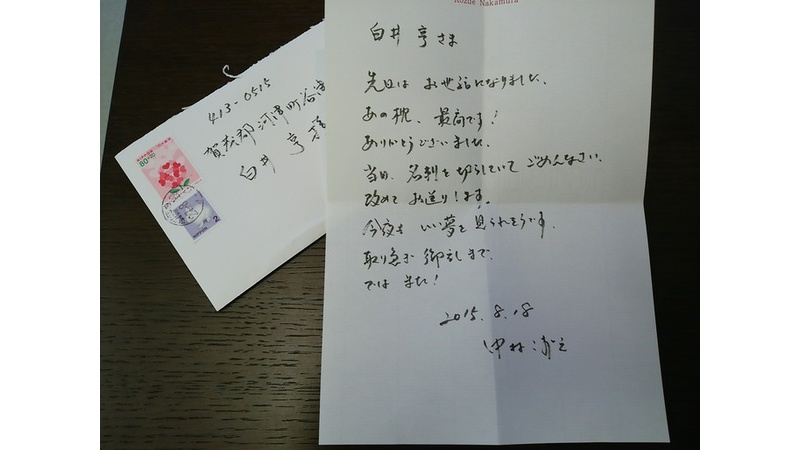 Kozue Nakamura
白井 亨さま
先日は お世話になりました。
あの枕、最高です!
ありがとうございました。
当日、名刺を切らしていて ごめんなさい。
改めて お送りします。
今夜も いい夢を 見られそうです。
取り急ぎ 御礼まで。
では また!
2015.8.18
413-0515
賀茂郡 河津町谷津
白井 亨 様
80
NIPPON 2